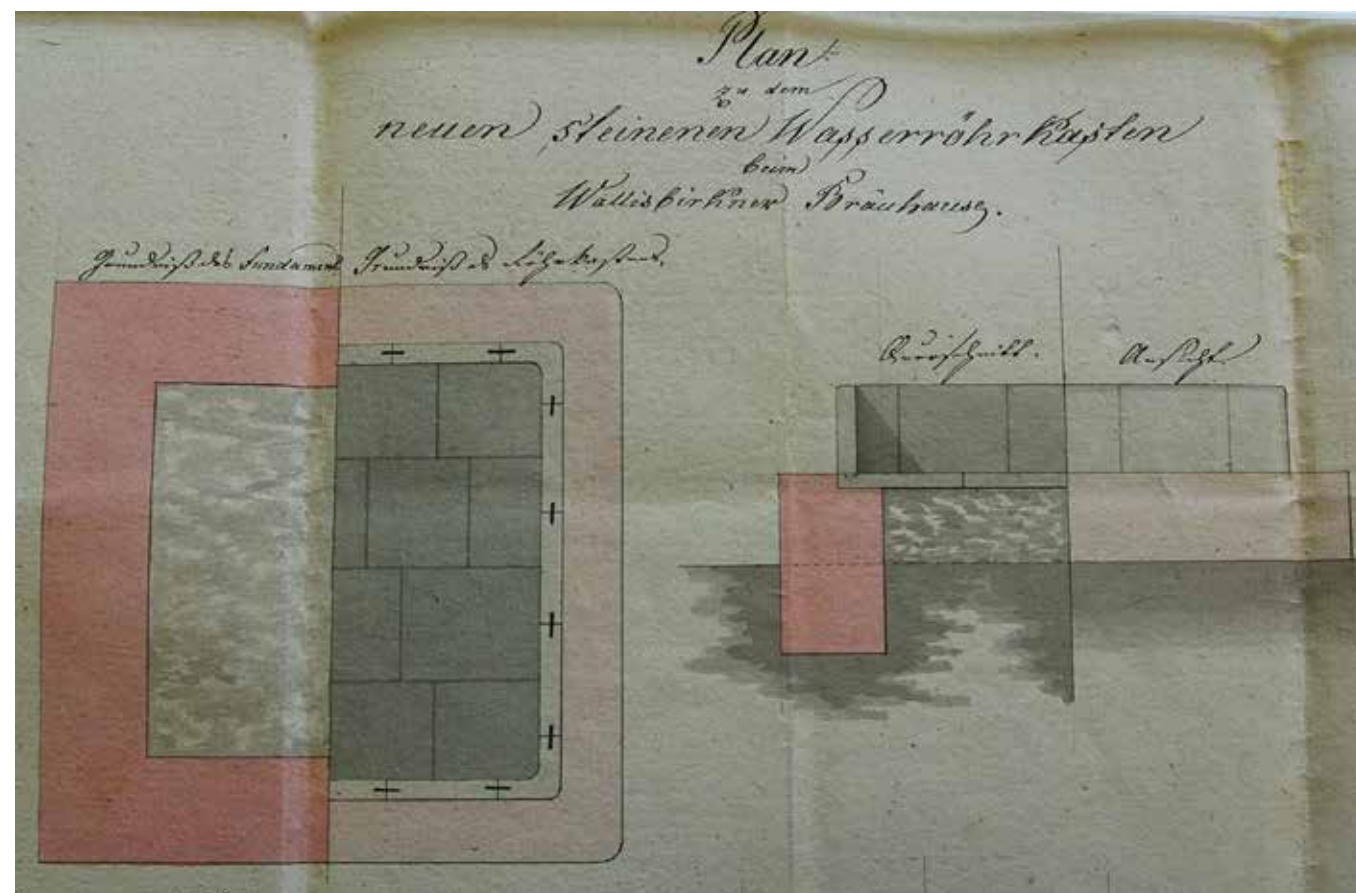 Plan
zu dem
neuen steinenen Wasserröhrkasten
beim
Walliskirchner Bräuhause.
Grundriß des Fundament
Grundriß des Röhrkastens.
Querschnitt.
Ansicht